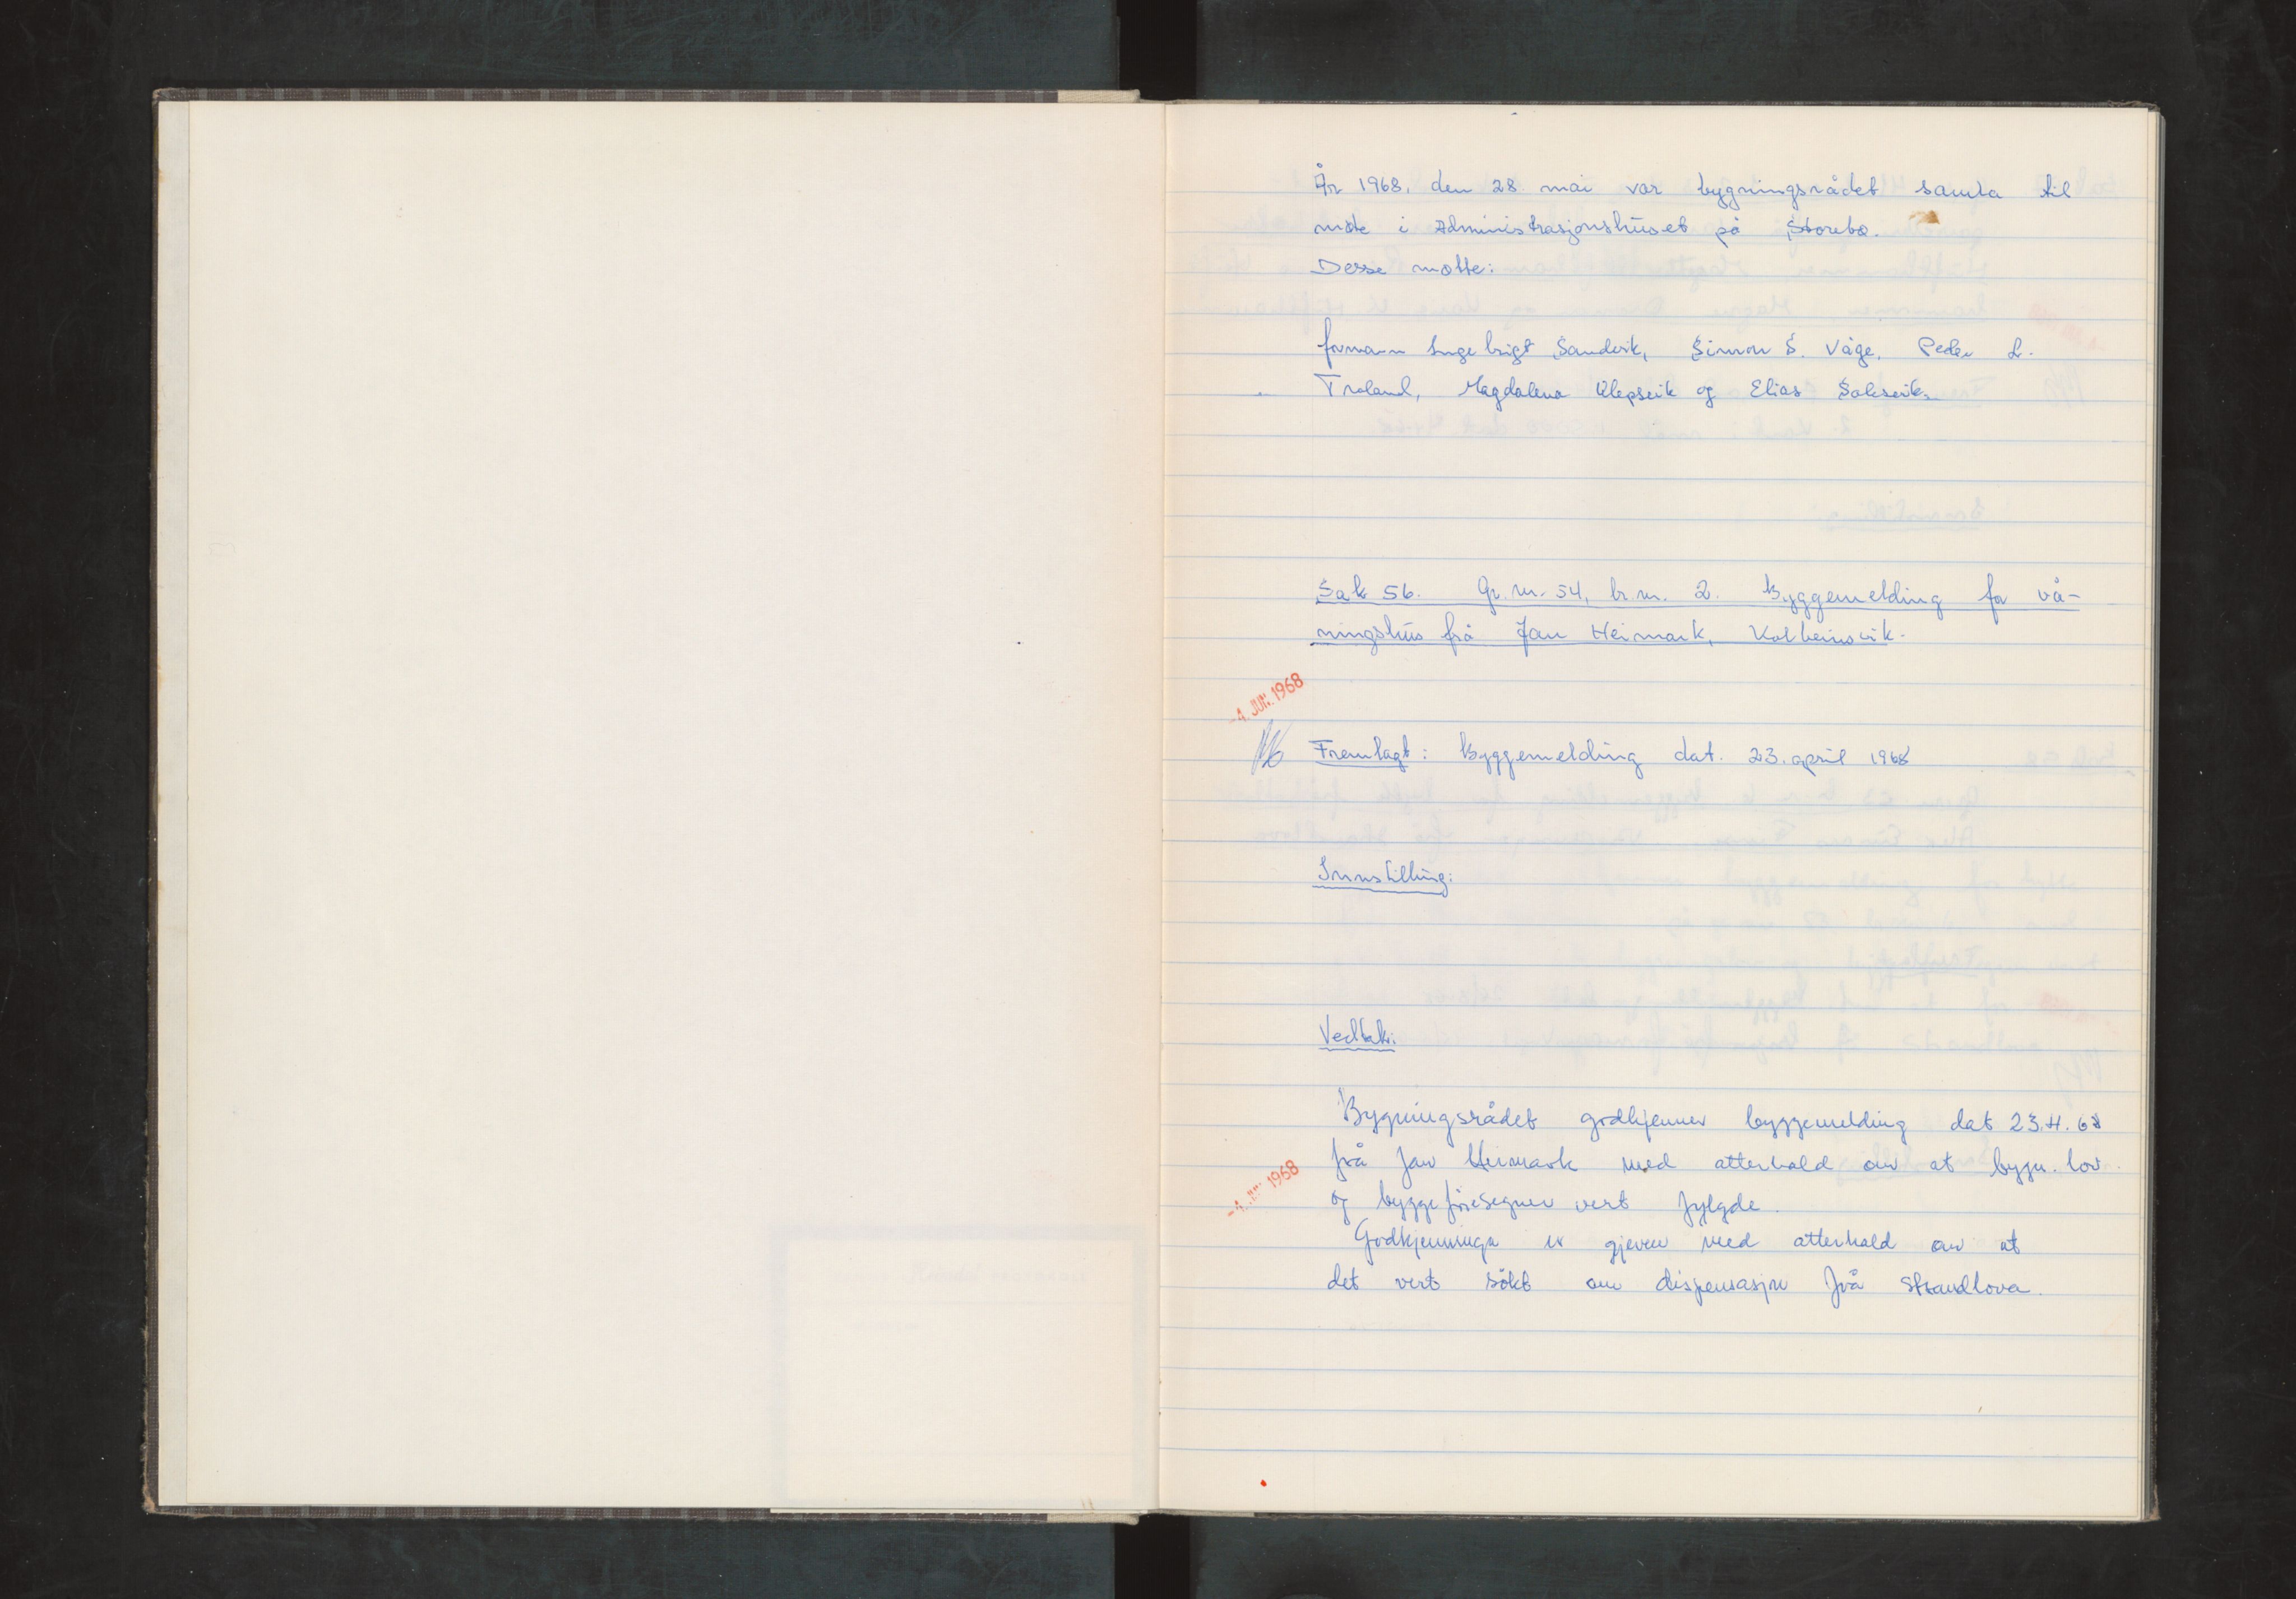 År 1968, den 28 mai var bygningsrådet samla til
møte i Administrasjonshuset på Storebø.
Desse møtte:
formann Ingebrigt Sandvik, Simon S. Våge, Peder L.
Troland, Magdalena Klepsvik og Elias Selsvik.
Sak 56. Gr.nr. 54, br.nr. 2. Byggemelding for vå-
ningshus frå Jan Heimark, Kolbeinsvik.
-4. JUN. 1968
Fremlagt: Byggemelding dat. 23. april 1968
Innstilling:
Vedtak:
Bygningsrådet godkjenner byggemelding dat 23.4.68
frå Jan Heimark med atterhald om at bygn. lov.
-4. JUN 1968
og byggeføresegner vert fylgde.
Godkjenninga er gjeven med atterhald om at
det vert søkt om dispensasjon frå strandlova.